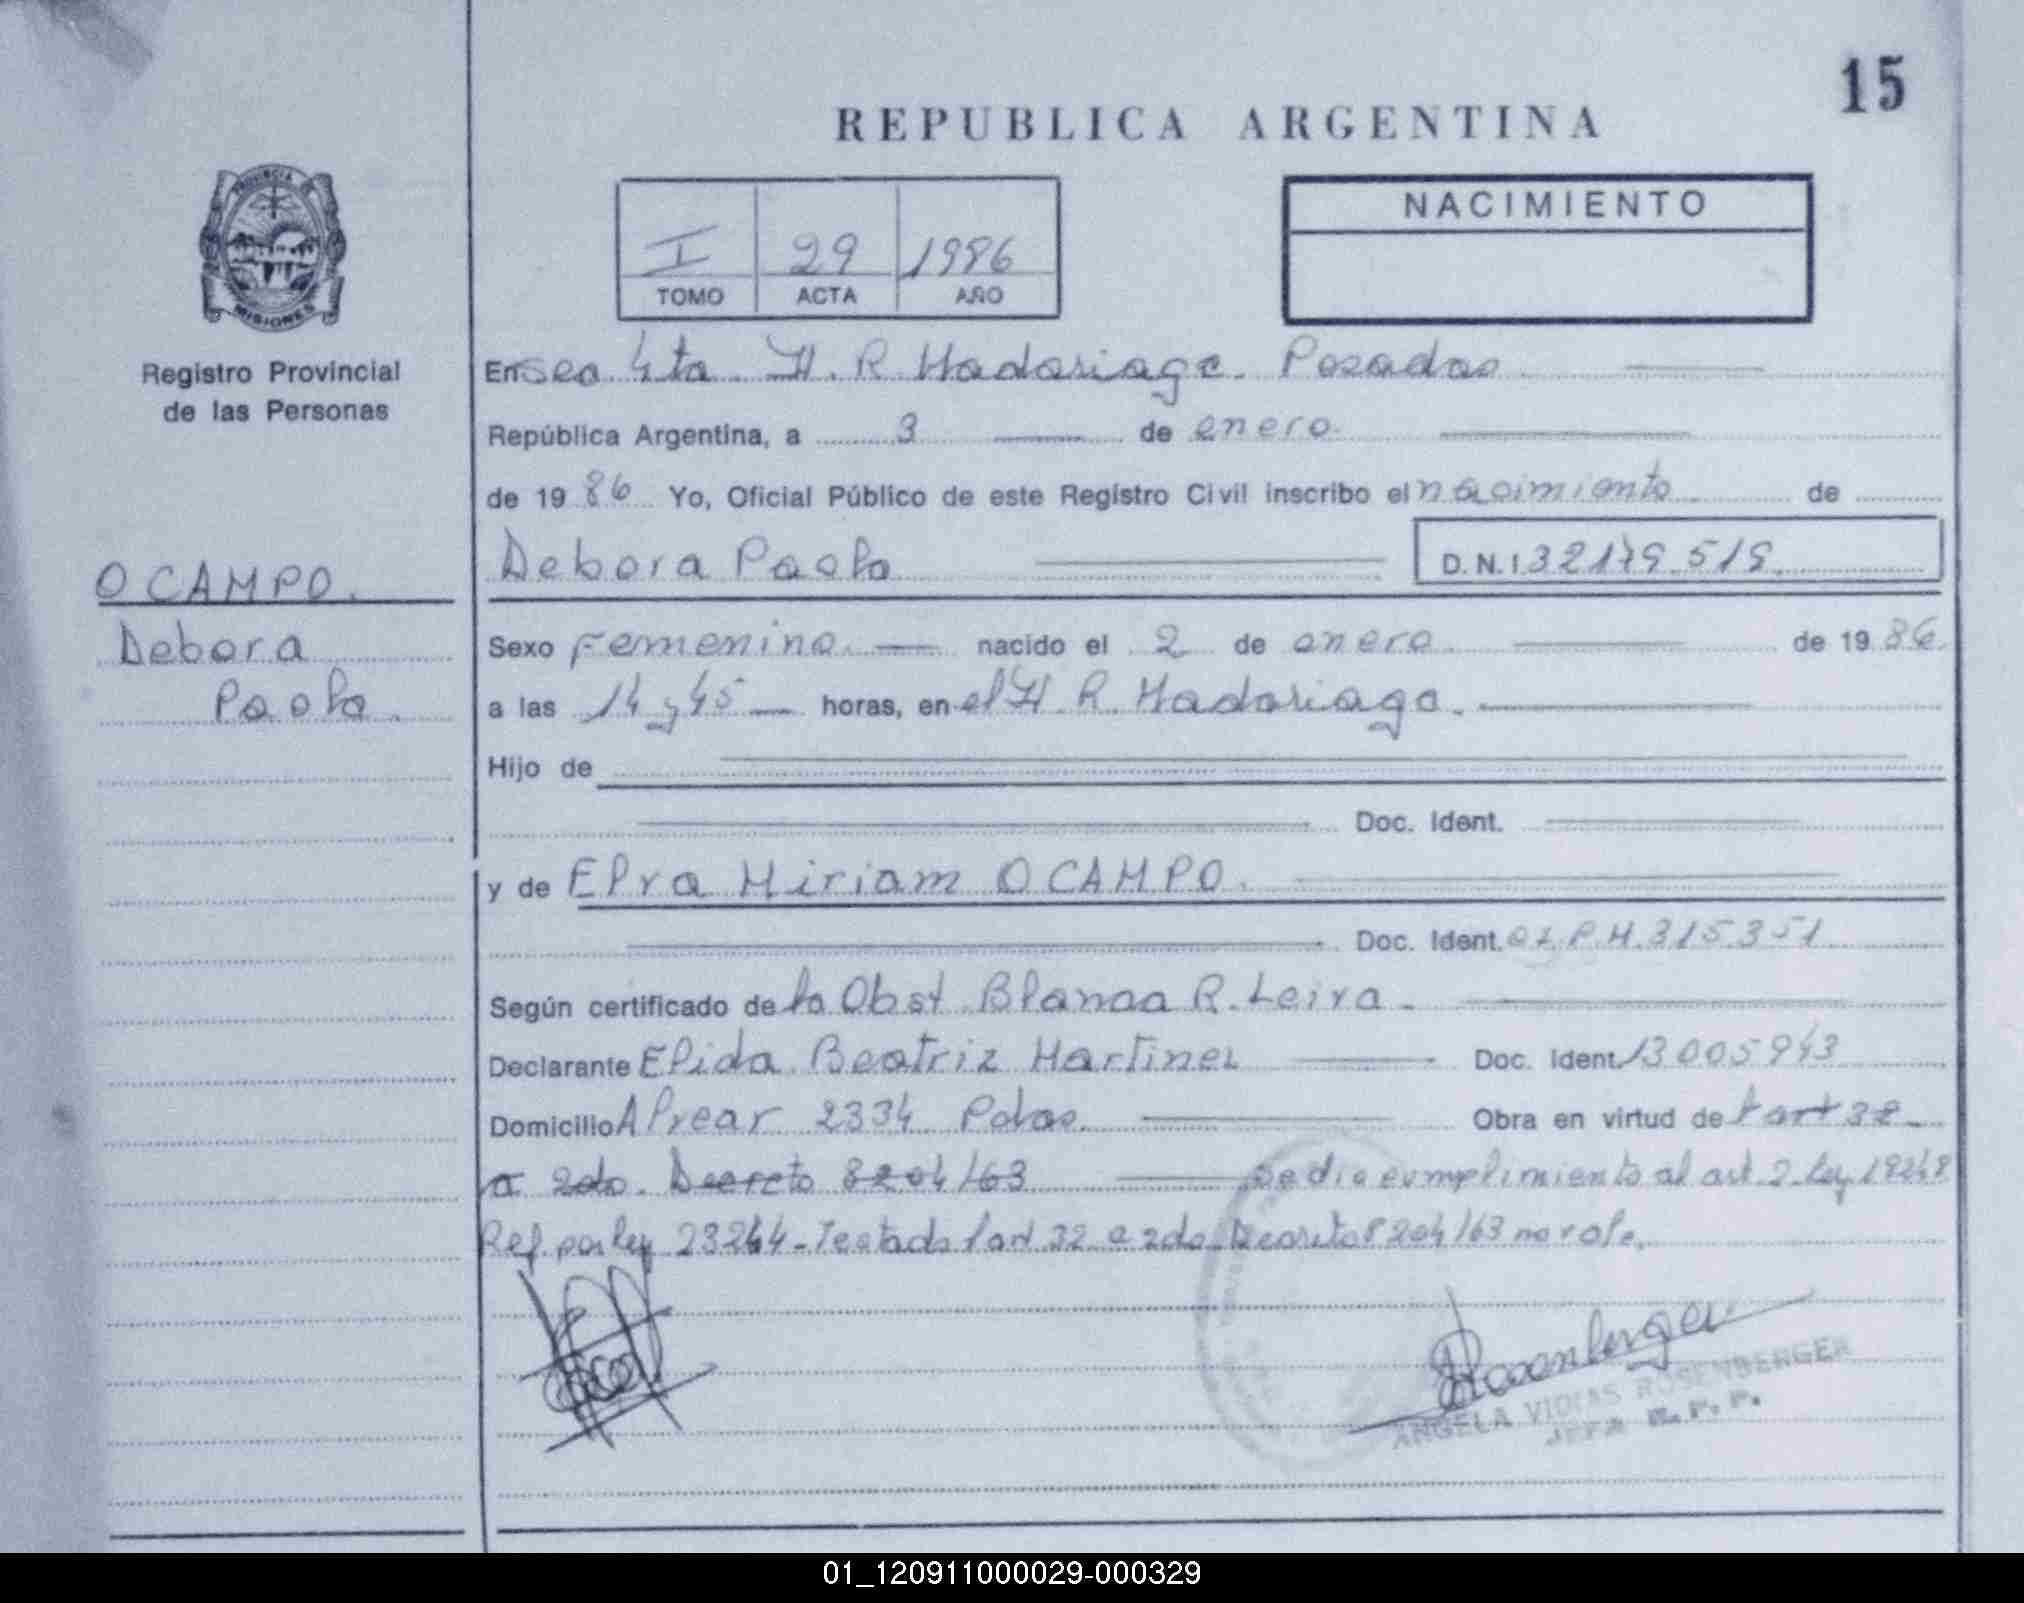 15
REPUBLICA ARGENTINA
PROVINCIA DE
MISIONES
Registro Provincial
de las Personas
I 29 1986
TOMO ACTA AÑO
NACIMIENTO
En Sec. 4ta. H. R. Madariaga. Posadas
República Argentina, a 3 de enero
de 19 86 Yo, Oficial Público de este Registro Civil inscribo el nacimiento de
Debora Paola
D.N.I. 32179.519
OCAMPO.
Debora
Paola.
Sexo Femenino. nacido el 2 de enero de 19 86
a las 14 y 45 horas, en el H. R. Madariaga.
Hijo de
Doc. Ident.
y de Elva Miriam OCAMPO.
Doc. Ident. C.I.P.M. 315351
Según certificado de la Obst. Blanca R. Leiva
Declarante Elida Beatriz Martinez Doc. Ident. 13005943
Domicilio Alvear 2334 Pdas. Obra en virtud de l art 32
a 2do. Decreto 8204/63 se dio cumplimiento al art. 2 Ley 18248
Ref. por ley 23264 - Testado l art 32 a 2do Decreto 8204/63 no vale.
Rosenberger
ANGELA ROSENBERGER
JEFA R. P. P.
01_120911000029-000329